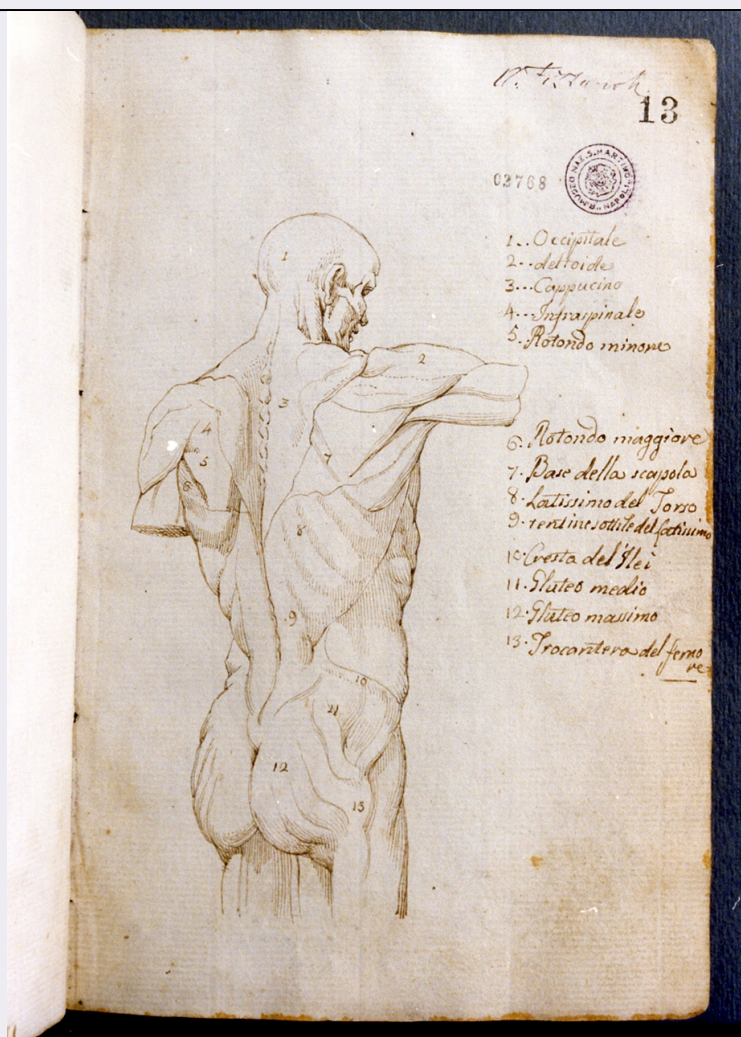 13
03768
R. MUSEO NAZ. S. MARTINO NAPOLI
1.. Occipitale
2.. deltoide
3... Cappucino
4.. Infraspinale
5. Rotondo minore
6. Rotondo maggiore
7. Base della scapola
8. Latissimo del Torso
9. del latissimo
10. Cresta del Ilei
11. Gluteo medio
12. Gluteo massimo
13. Trocantero del femo
re
1
2
3
4
5
6
7
8
9
10
11
12
13